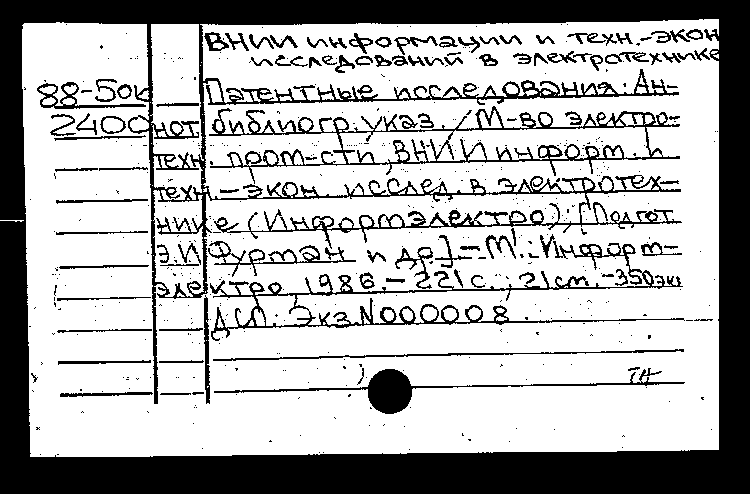 ВНИИ информации и техн.-экон
исследований в электротехнике
88-50к Патентные исследования: Ан-
2400 нот. библиогр. указ. / М-во электро-
техн. пром-сти, ВНИИ информ. и
техн.-экон. исслед. в электротех-
нике (Информэлектро); [Подгот.
Э.И Фуртан и др.] - М.: Информ-
электро, 1986. - 221 с.; 21 см. - 350 экз
ДСП. Экз. N000008.